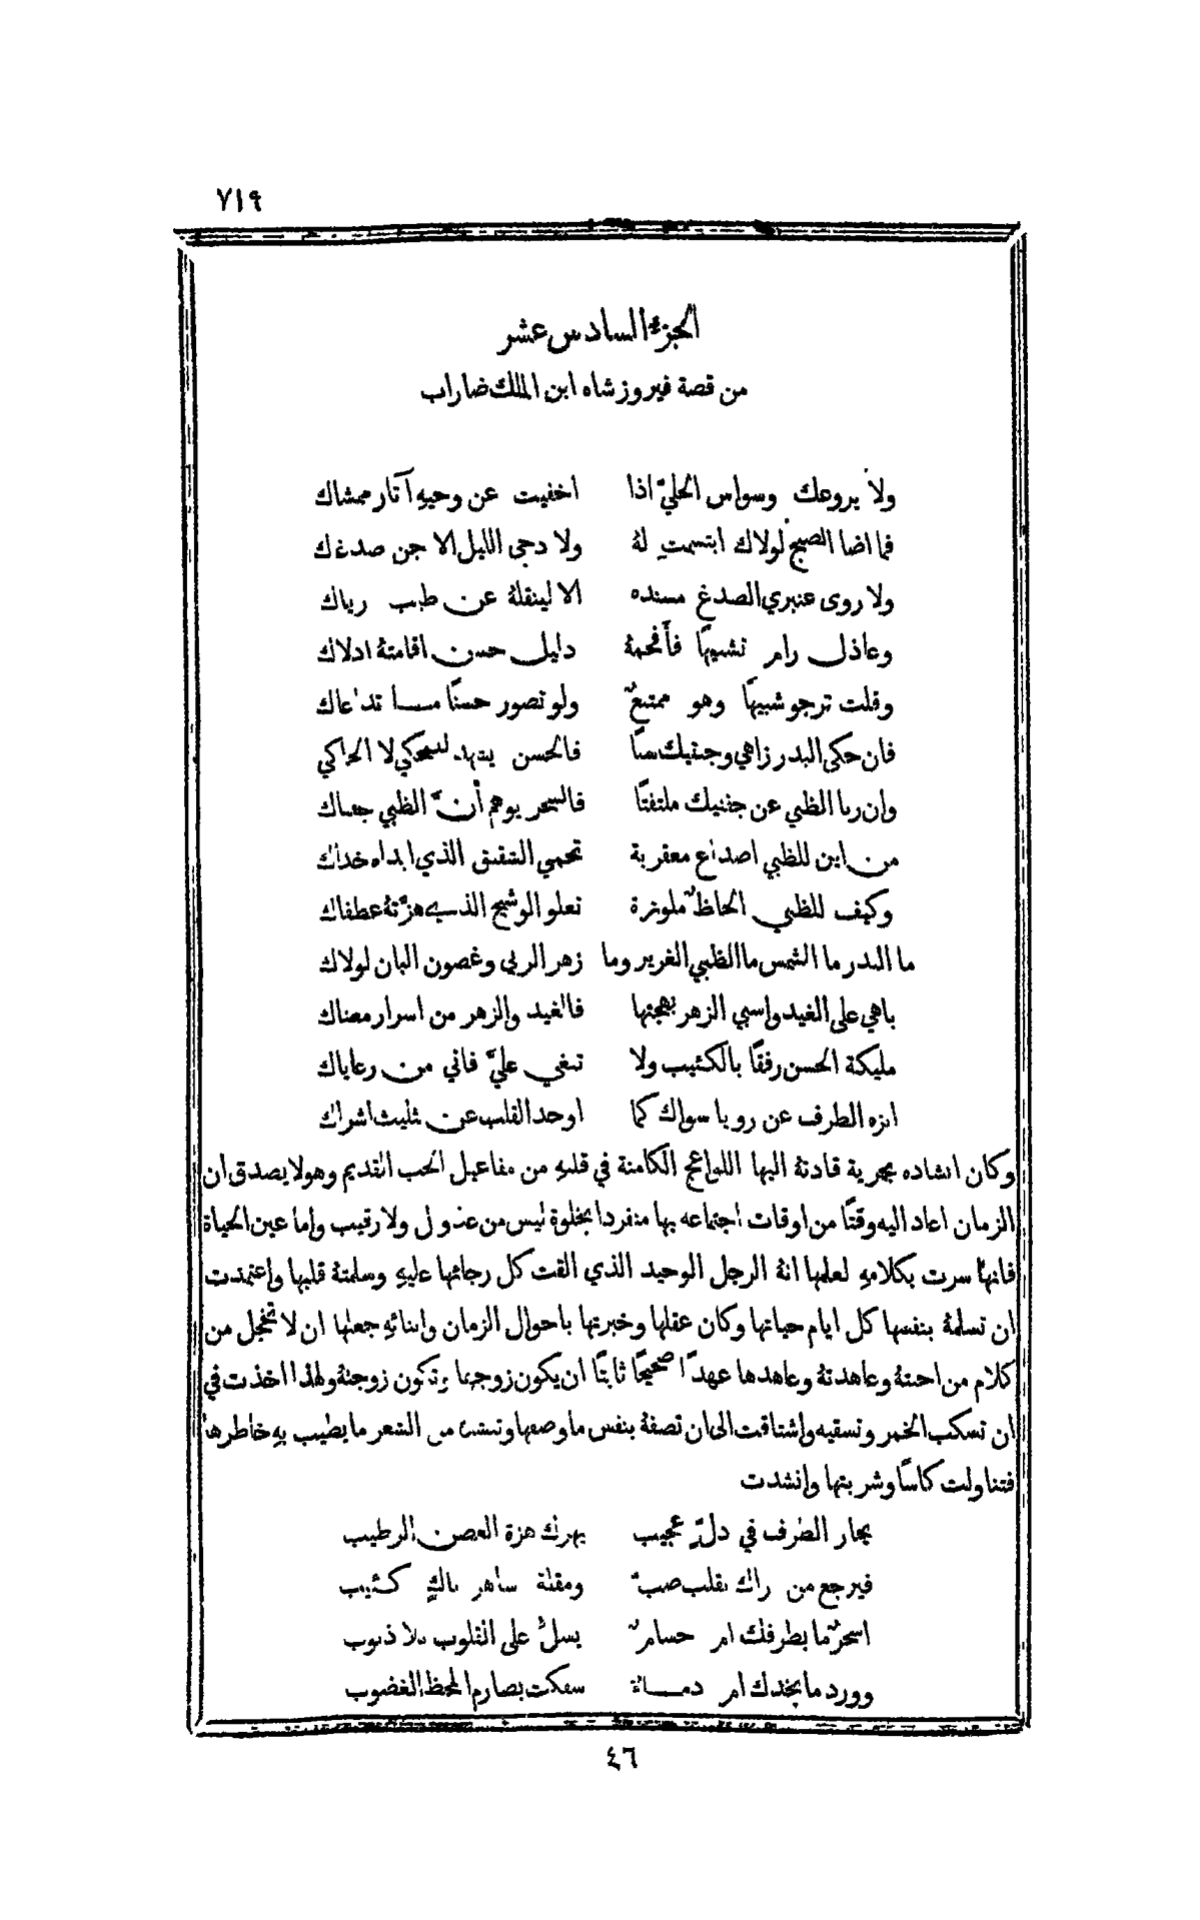 ٧١٩
الجزء السادس عشر
من قصة فيروز شاه ابن الملك ضاراب
ولا يروعك وسواس الحليّ اذا اخفيت عن وحيهِ آثار ممشاك
فما اضا الصبح لولاك ابتسمتِ لهُ ولا دجى الليل الا جن صدغك
ولا روى عنبري الصدغ مسنده الا لينقلهُ عن طيب رياك
وعاذل رام تشبيهًا فأفحمهُ دليل حسن اقامتهُ ادلاك
وقلت ترجو شبيهًا وهو ممتنعٌ ولو تصور حسنًا ما تدعاك
فان حكى البدر زاهي وجنتيك سنًا فالحسن يشهد للمحكي لا الحاكي
وان رنا الظبي عن جفنيك ملتفتًا فالسحر يوهم أنَّ الظبي جفناك
من اين للظبي اصداع معقربة تحمي الشقيق الذي ابداه خداك
وكيف للظبي الحاظٌ ملوزة تعلو الوشيج الذي هزَّتهُ عطفاك
ما البدر ما الشمس ما الظبي الغرير وما زهر الربى وغصون البان لولاك
باهي على الغيد واسبي الزهر بهجتها فالغيد والزهر من اسرار معناك
مليكة الحسن رفقًا بالكئيب ولا تبغي عليَّ فاني من رعاياك
انزه الطرف عن رويا سواك كما اوحد القلب عن تثليث اشراك
وكان انشاده بحرية قادتهُ اليها اللواعج الكامنة في قلبهِ من مفاعيل الحب القديم وهو لا يصدق ان
الزمان اعاد اليه وقتًا من اوقات اجتماعه بها منفردا بخلوة ليس من عذول ولا رقيب واما عين الحياة
فانها سرت بكلامهِ لعلمها انهُ الرجل الوحيد الذي القت كل رجائها عليهِ وسلمتهُ قلبها واعتمدت
ان تسلمهُ بنفسها كل ايام حياتها وكان عقلها وخبرتها باحوال الزمان وابنائهِ جعلها ان لا تخجل من
كلام من احبتهُ وعاهدتهُ وعاهدها عهدًا صحيحًا ثابتًا ان يكون زوجها وتكون زوجتهُ ولهذا اخذت في
ان تسكب الخمر وتسقيه واشتاقت الى ان تصفهُ بنفس ما وصفها وتنشئ من الشعر ما يطيب بهِ خاطرها
فتناولت كاسًا وشربتها وانشدت
يحار الطرف في دلٍّ عجيب يهزك هزة الغصن الرطيب
فيرجع من راك بقلب صبٍّ ومقلة ساهر باكٍ كئيب
اسحرٌ ما بطرفك ام حسامٌ يسلُّ على القلوب بلا ذنوب
وورد ما بخدك ام دماءٌ سفكت بصارم اللحظ الغضوب
٤٦